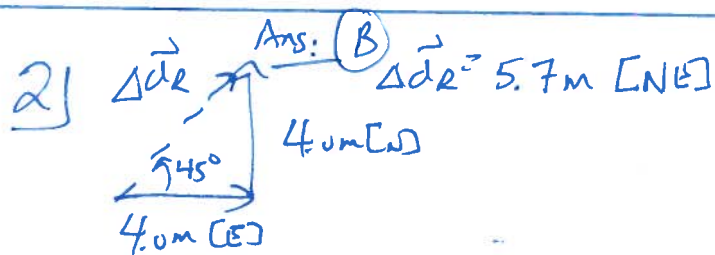 2) Δd⃗R Ans: B Δd⃗R = 5.7m [NE]
45° 4.0m[N]
4.0m [E]